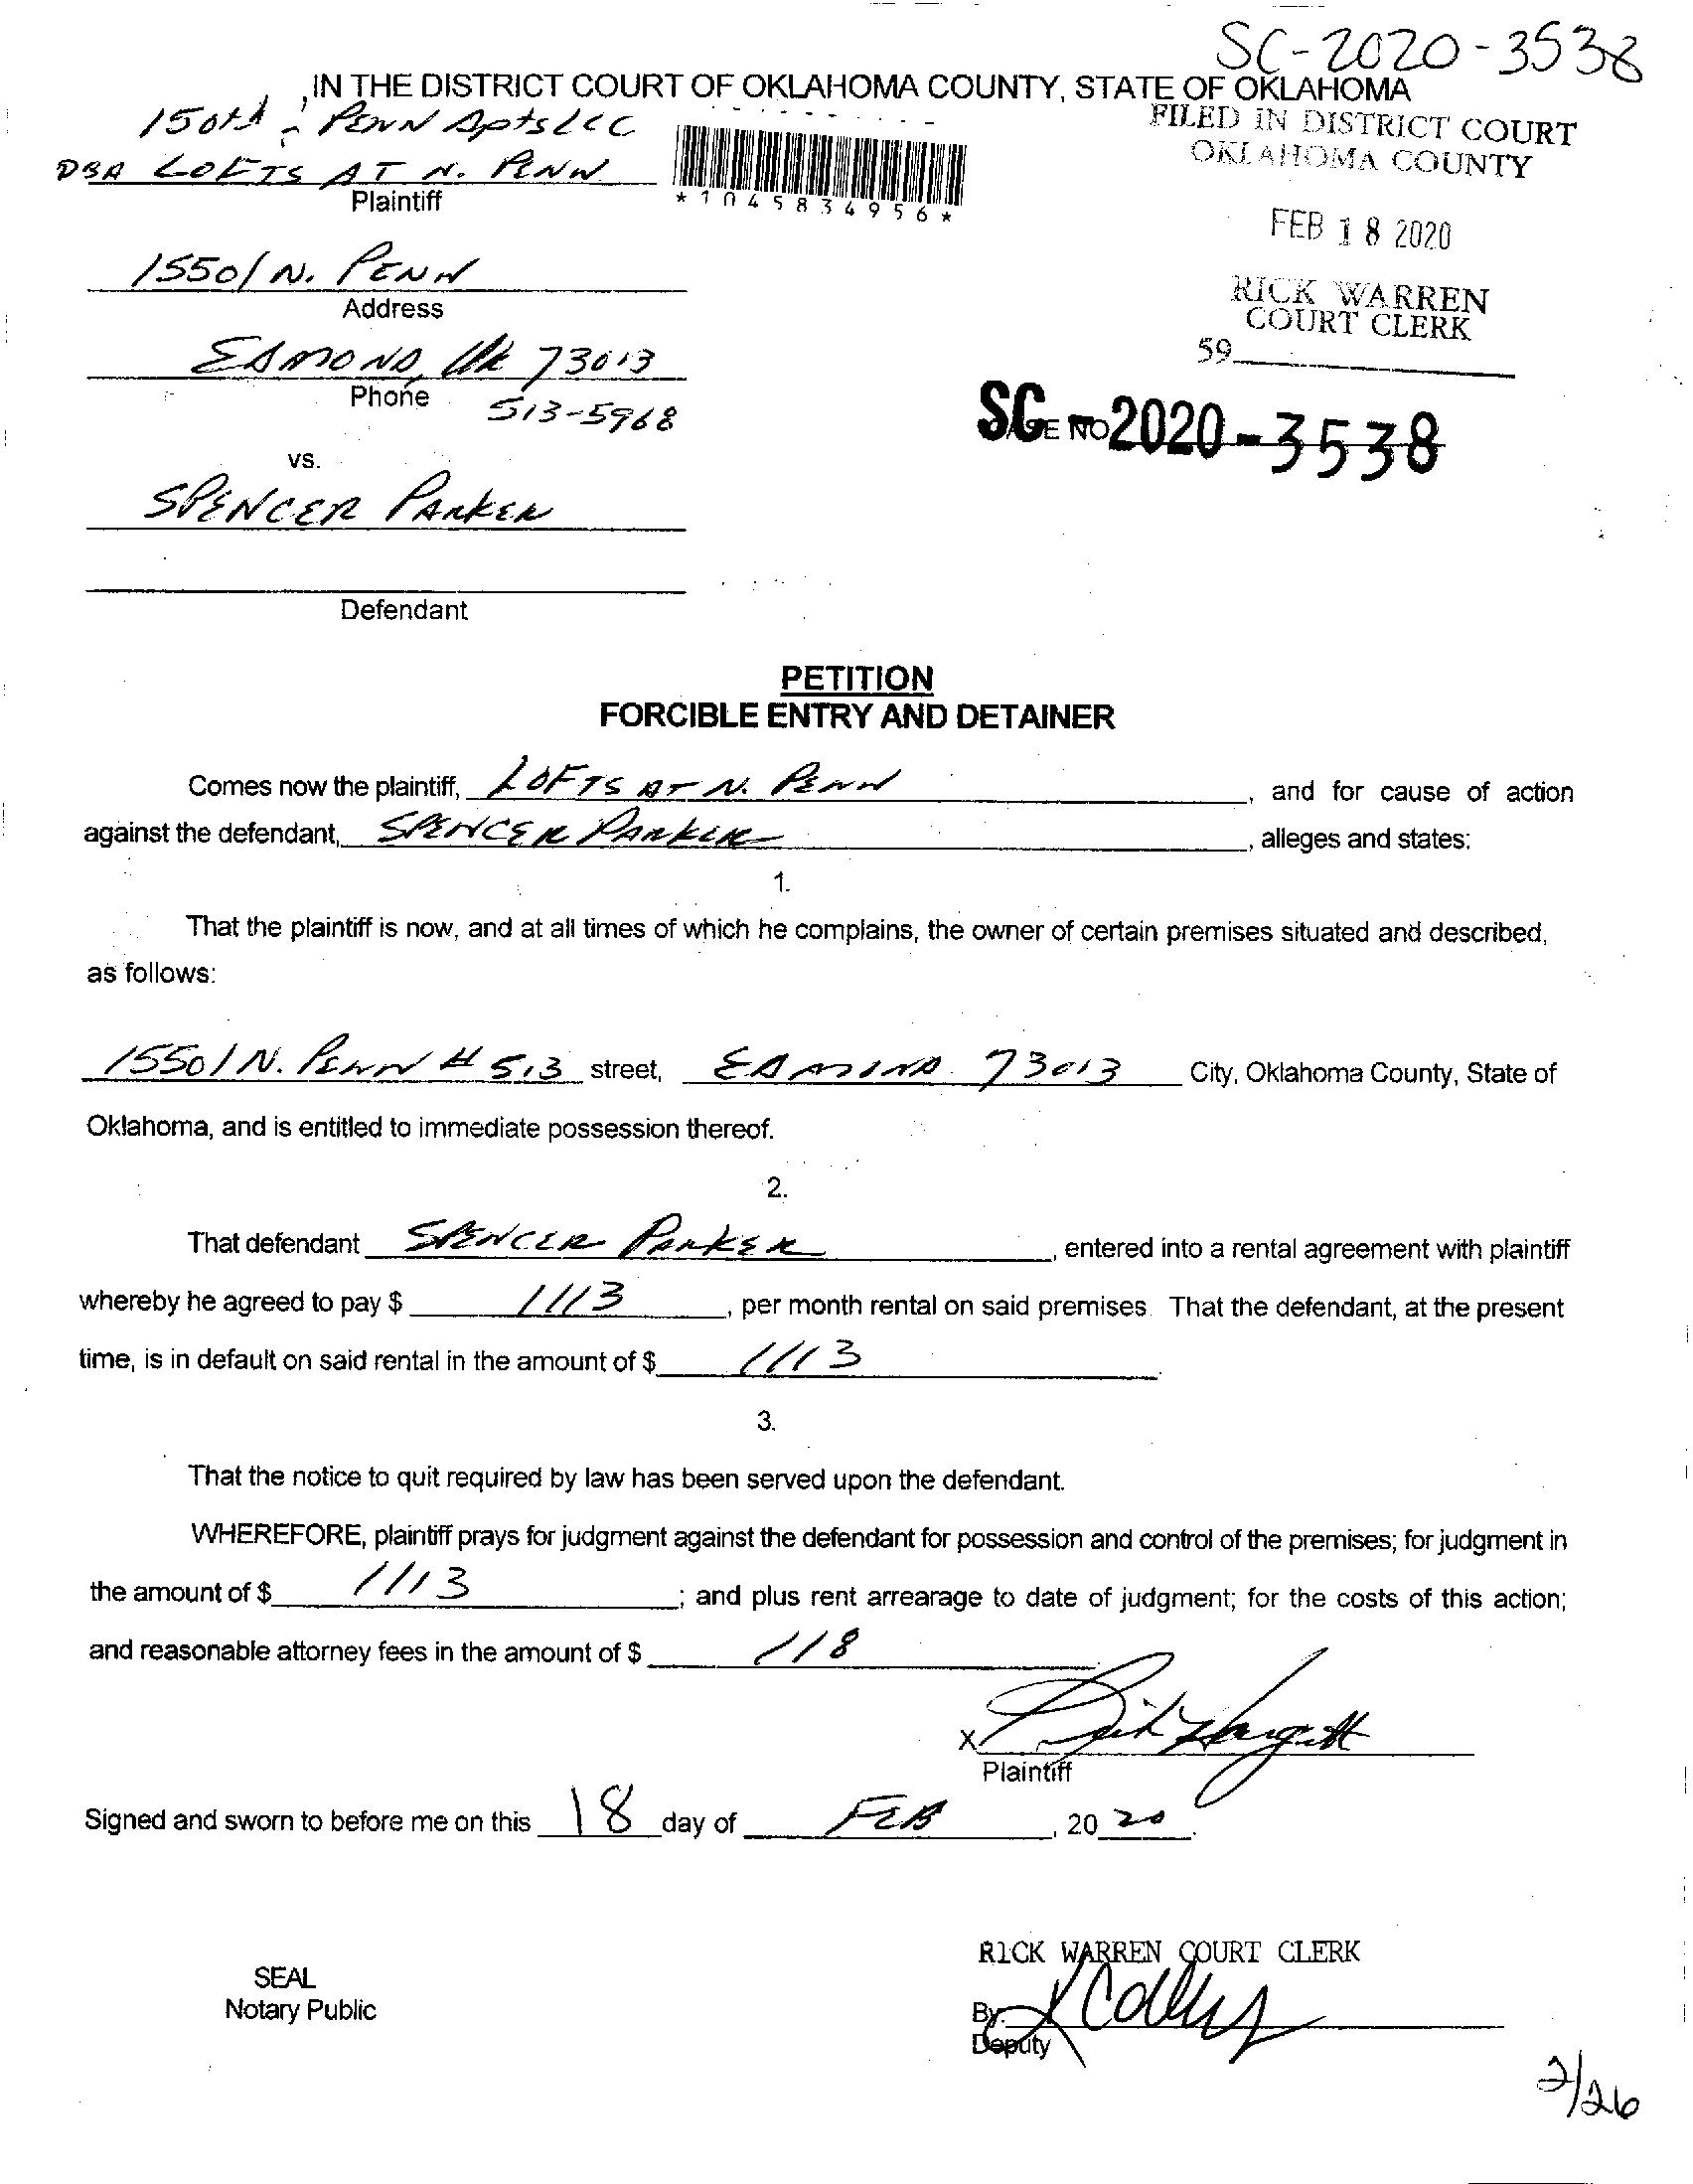 SC-2020-3538
IN THE DISTRICT COURT OF OKLAHOMA COUNTY, STATE OF OKLAHOMA
150th & PENN Apts LLC
DBA LOFTS AT N. PENN
Plaintiff
*1045834956*
FILED IN DISTRICT COURT
OKLAHOMA COUNTY
FEB 18 2020
RICK WARREN
COURT CLERK
59
15501 N. PENN
Address
EDMOND, OK 73013
Phone 513-5968
SC-2020-3538
vs.
SPENCER PARKER
Defendant
PETITION
FORCIBLE ENTRY AND DETAINER
Comes now the plaintiff, LOFTS AT N. PENN, and for cause of action
against the defendant, SPENCER PARKER, alleges and states:
1.
That the plaintiff is now, and at all times of which he complains, the owner of certain premises situated and described,
as follows:
15501 N. PENN # 513 street, EDMOND 73013 City, Oklahoma County, State of
Oklahoma, and is entitled to immediate possession thereof.
2.
That defendant SPENCER PARKER, entered into a rental agreement with plaintiff
whereby he agreed to pay $ 1113, per month rental on said premises. That the defendant, at the present
time, is in default on said rental in the amount of $ 1113.
3.
That the notice to quit required by law has been served upon the defendant.
WHEREFORE, plaintiff prays for judgment against the defendant for possession and control of the premises; for judgment in
the amount of $ 1113; and plus rent arrearage to date of judgment; for the costs of this action;
and reasonable attorney fees in the amount of $ 118
X
Plaintiff
Signed and sworn to before me on this 18 day of FEB, 2020.
RICK WARREN COURT CLERK
SEAL
Notary Public
By:
Deputy
2/26